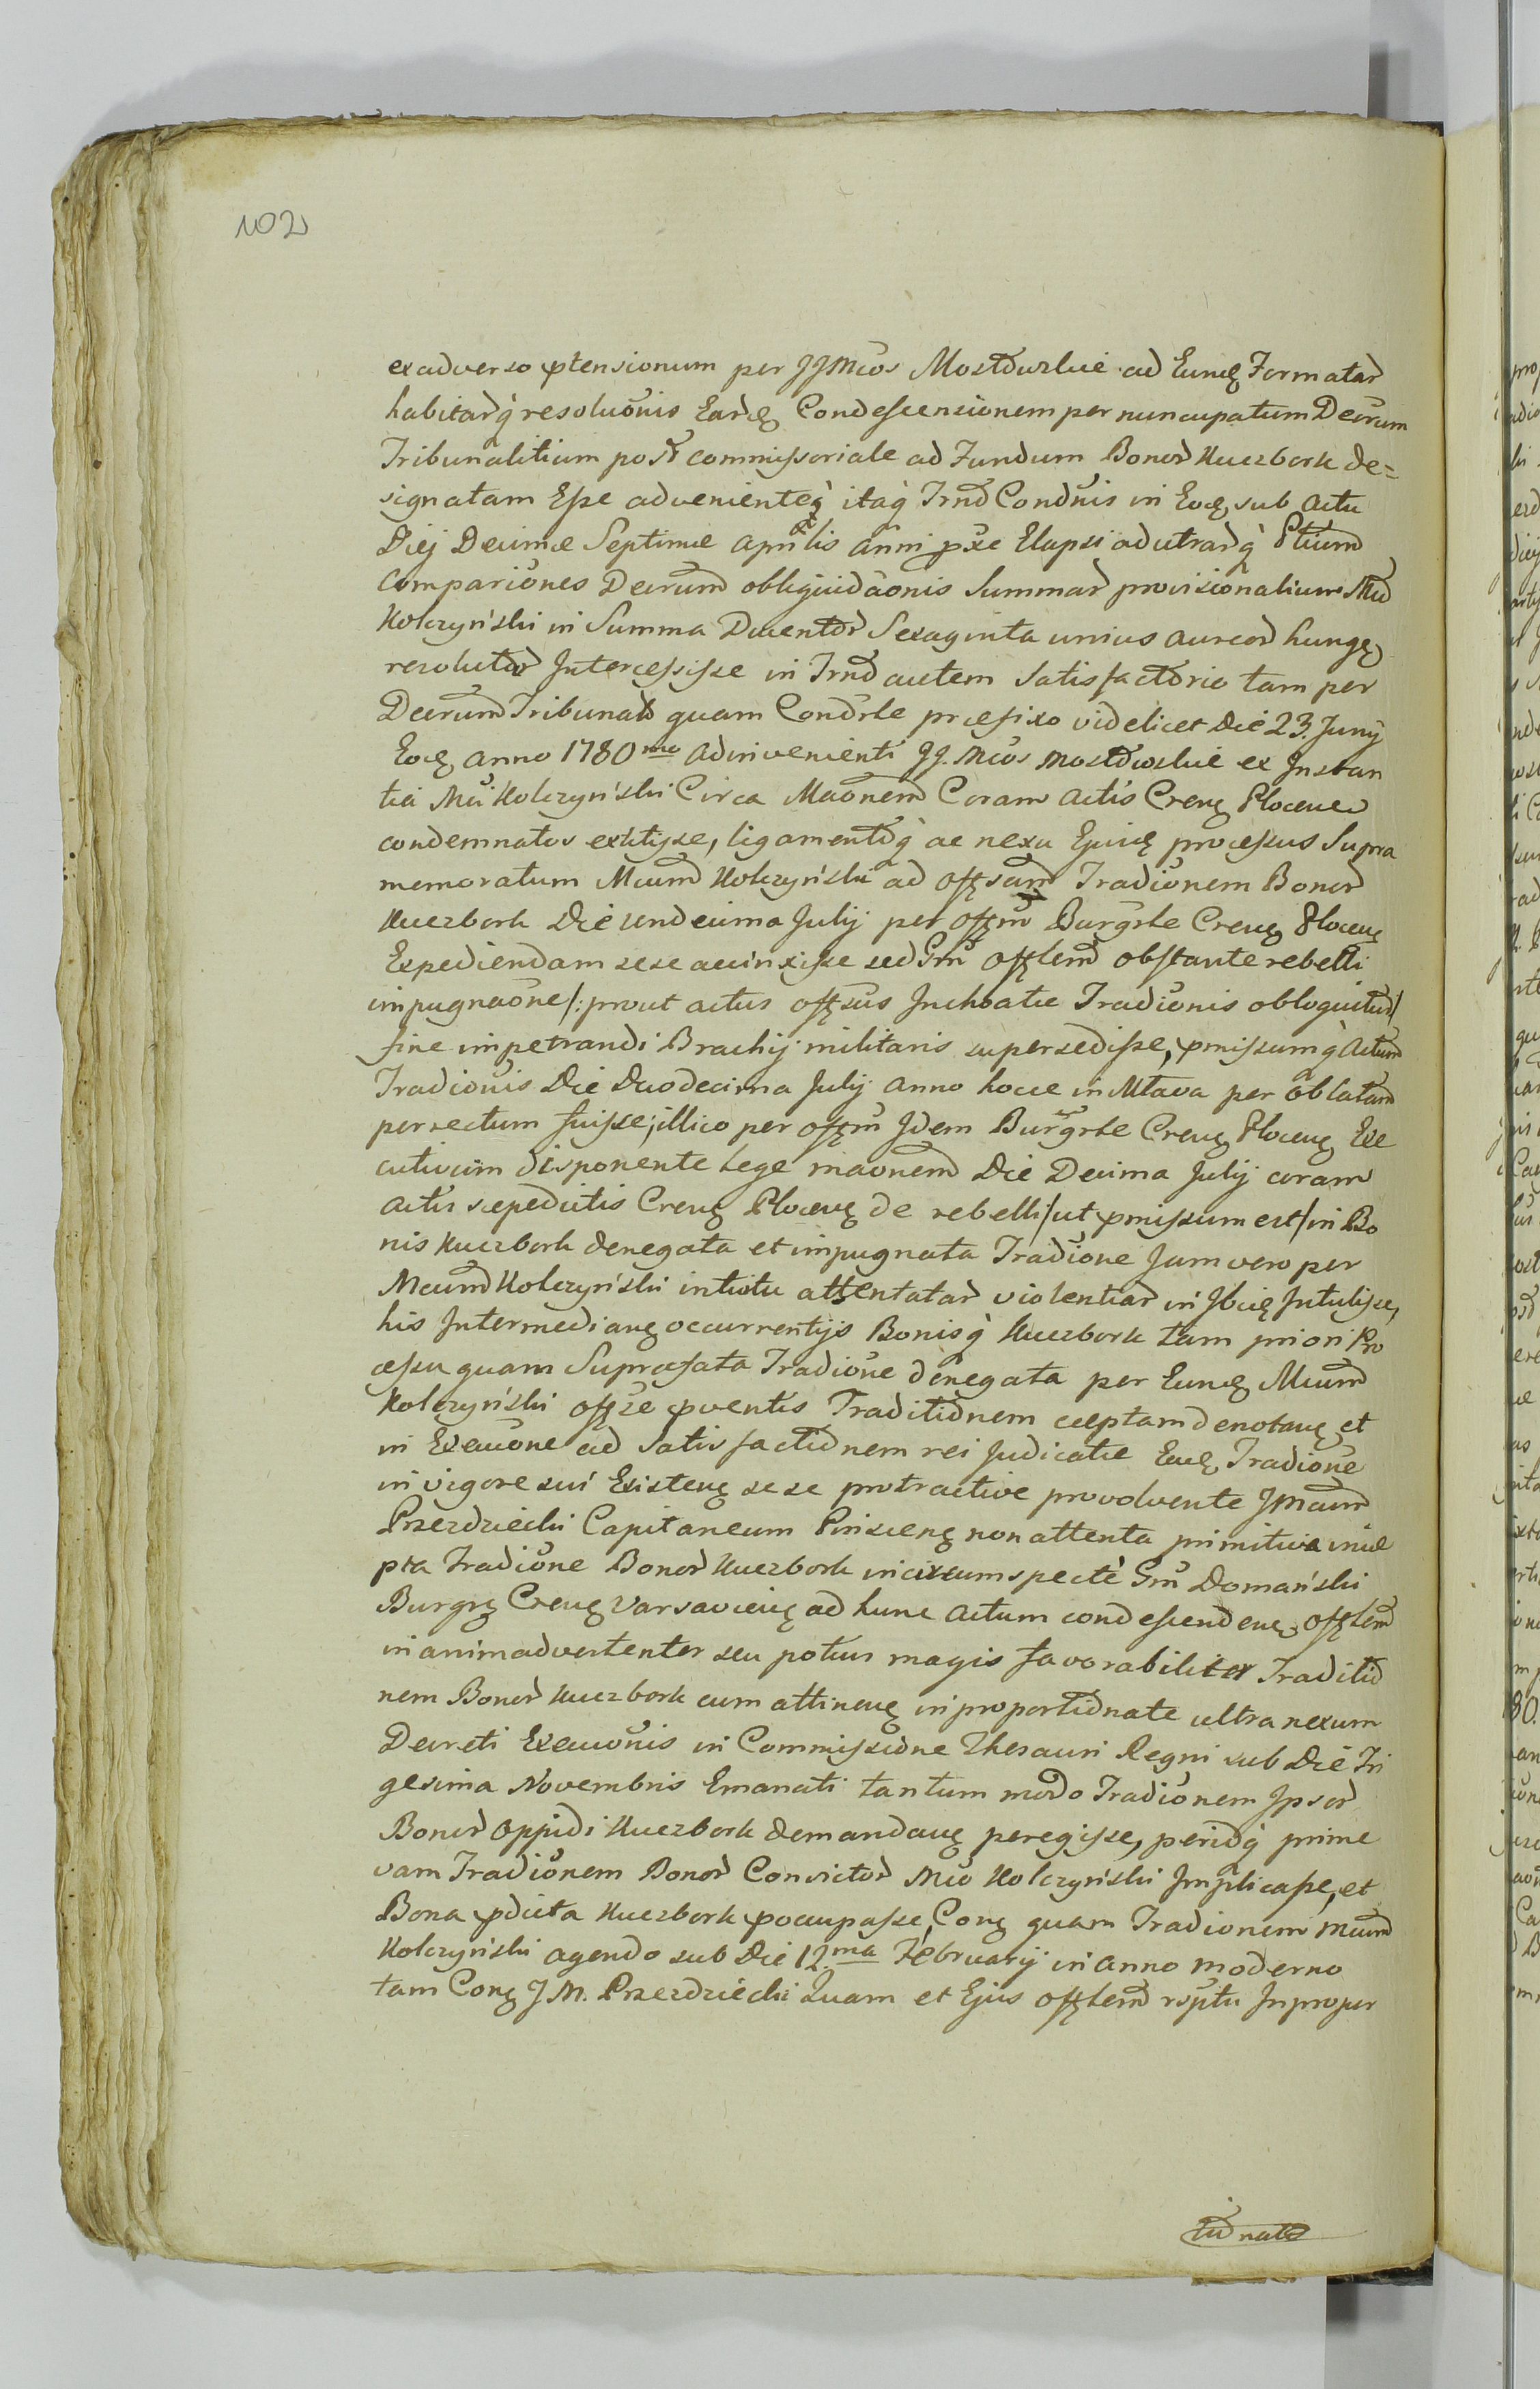 102
exadverso ptensionum per JJMcos Mostowskie ad Eumq Formatar
habitarq resoluconis Earq Condescensionem per nuncupatum Decrum
Tribunalitium post commissoriale ad Fundum Bonor Kuczbork de=
signatam Esse adveniente itaq Trno Condnis in Eoq sub actu
Diej Decimæ Septimæ Aprilis anni pxe Elapsi ad utrarq Ptium
Compariones Decrum obliquidaonis Summar provisionalium Mco
Kolczyński in Summa Ducentor Sexaginta unius aureor hungq
resolutor Intercessisse in Trno autem Satisfactorio tam per
Decrum Tribunale quam Condrle præfixo videlicet Die 23. Junij
Eoq anno 1780mo adinvenienti JJ. Mcos Mostowskie ex Jnstan
tia Mci Kolczyński Circa Maonem Coram Actis Crenq Plocenq
condemnatos extitisse, ligamentoq ac nexu Ejusq processus Supra
memoratum Mcum Kolczyński ad offsam Tradionem Bonor
Kuczbork Die undecima Julij per offm Burgrle Crenq Plocenq
Expediendam sese accinxisse sed Gm offlem obstante rebelli
impugnaone /: prout actus offsus Jnchoatæ Tradionis obloquitur/
fine impetrandi Brachij militaris supersedisse, pmissumq Actum
Tradionis Die Duodecima Julij Anno hocce in Mlava per oblatam
perrectum fuisse; illico per offm Jdem Burgrle Crenq Plocenq Exe
cutivum disponente lege maonem Die Decima Julij coram
actis sæpedictis Crenq Plocenq de rebelli /ut pmissum est/ in Bo
nis Kuczbork denegata et impugnata Tradione Jam vero per
Mcum Kolczyński intuitu attentatar violentiar in Jbiq Jntulisse,
his Jntermedianq occurrentijs Bonisq Kuczbork tam priori Pro
cessu quam Suprafata Tradione denegata per Eumq Mcum
Kolczyński offse pventis Traditionem cæptam denotanq et
in Execuone ad Satisfactionem rei Judicatæ Eaq Tradione
in vigore sui Existenq sese protractive provolvente JMcum
Przezdziecki Capitaneum Pinscenq non attenta primitiva incæ
pta Tradione Bonor Kuczbork incircumspecte Gm Domański
Burgrq Crenq Varsavienq ad hunc Actum condescendenq offlem
inanimadvertenter seu potius magis favorabiliter Traditio
nem Bonor Kuczbork cum attinenq inproportionate ultra nexum
Decreti Execuonis in Commissione Thesauri Regni sub Die Tri
gesima Novembris Emanati tantum modo Tradionem Jpsor
Bonor oppidi Kuczbork demandanq peregisse, perinoq prime
vam Tradionem Bonor Convictor Mco Kolczyński Jmplicasse, et
Bona pdicta Kuczbork pocupasse, Conq quam Tradionem Mcum
Kolczyński agendo sub Die 12.ma Februarij in anno moderno
tam Conq J.M. Przezdziecki Quam et Ejus offlem rsptu Jnpropor
tionate